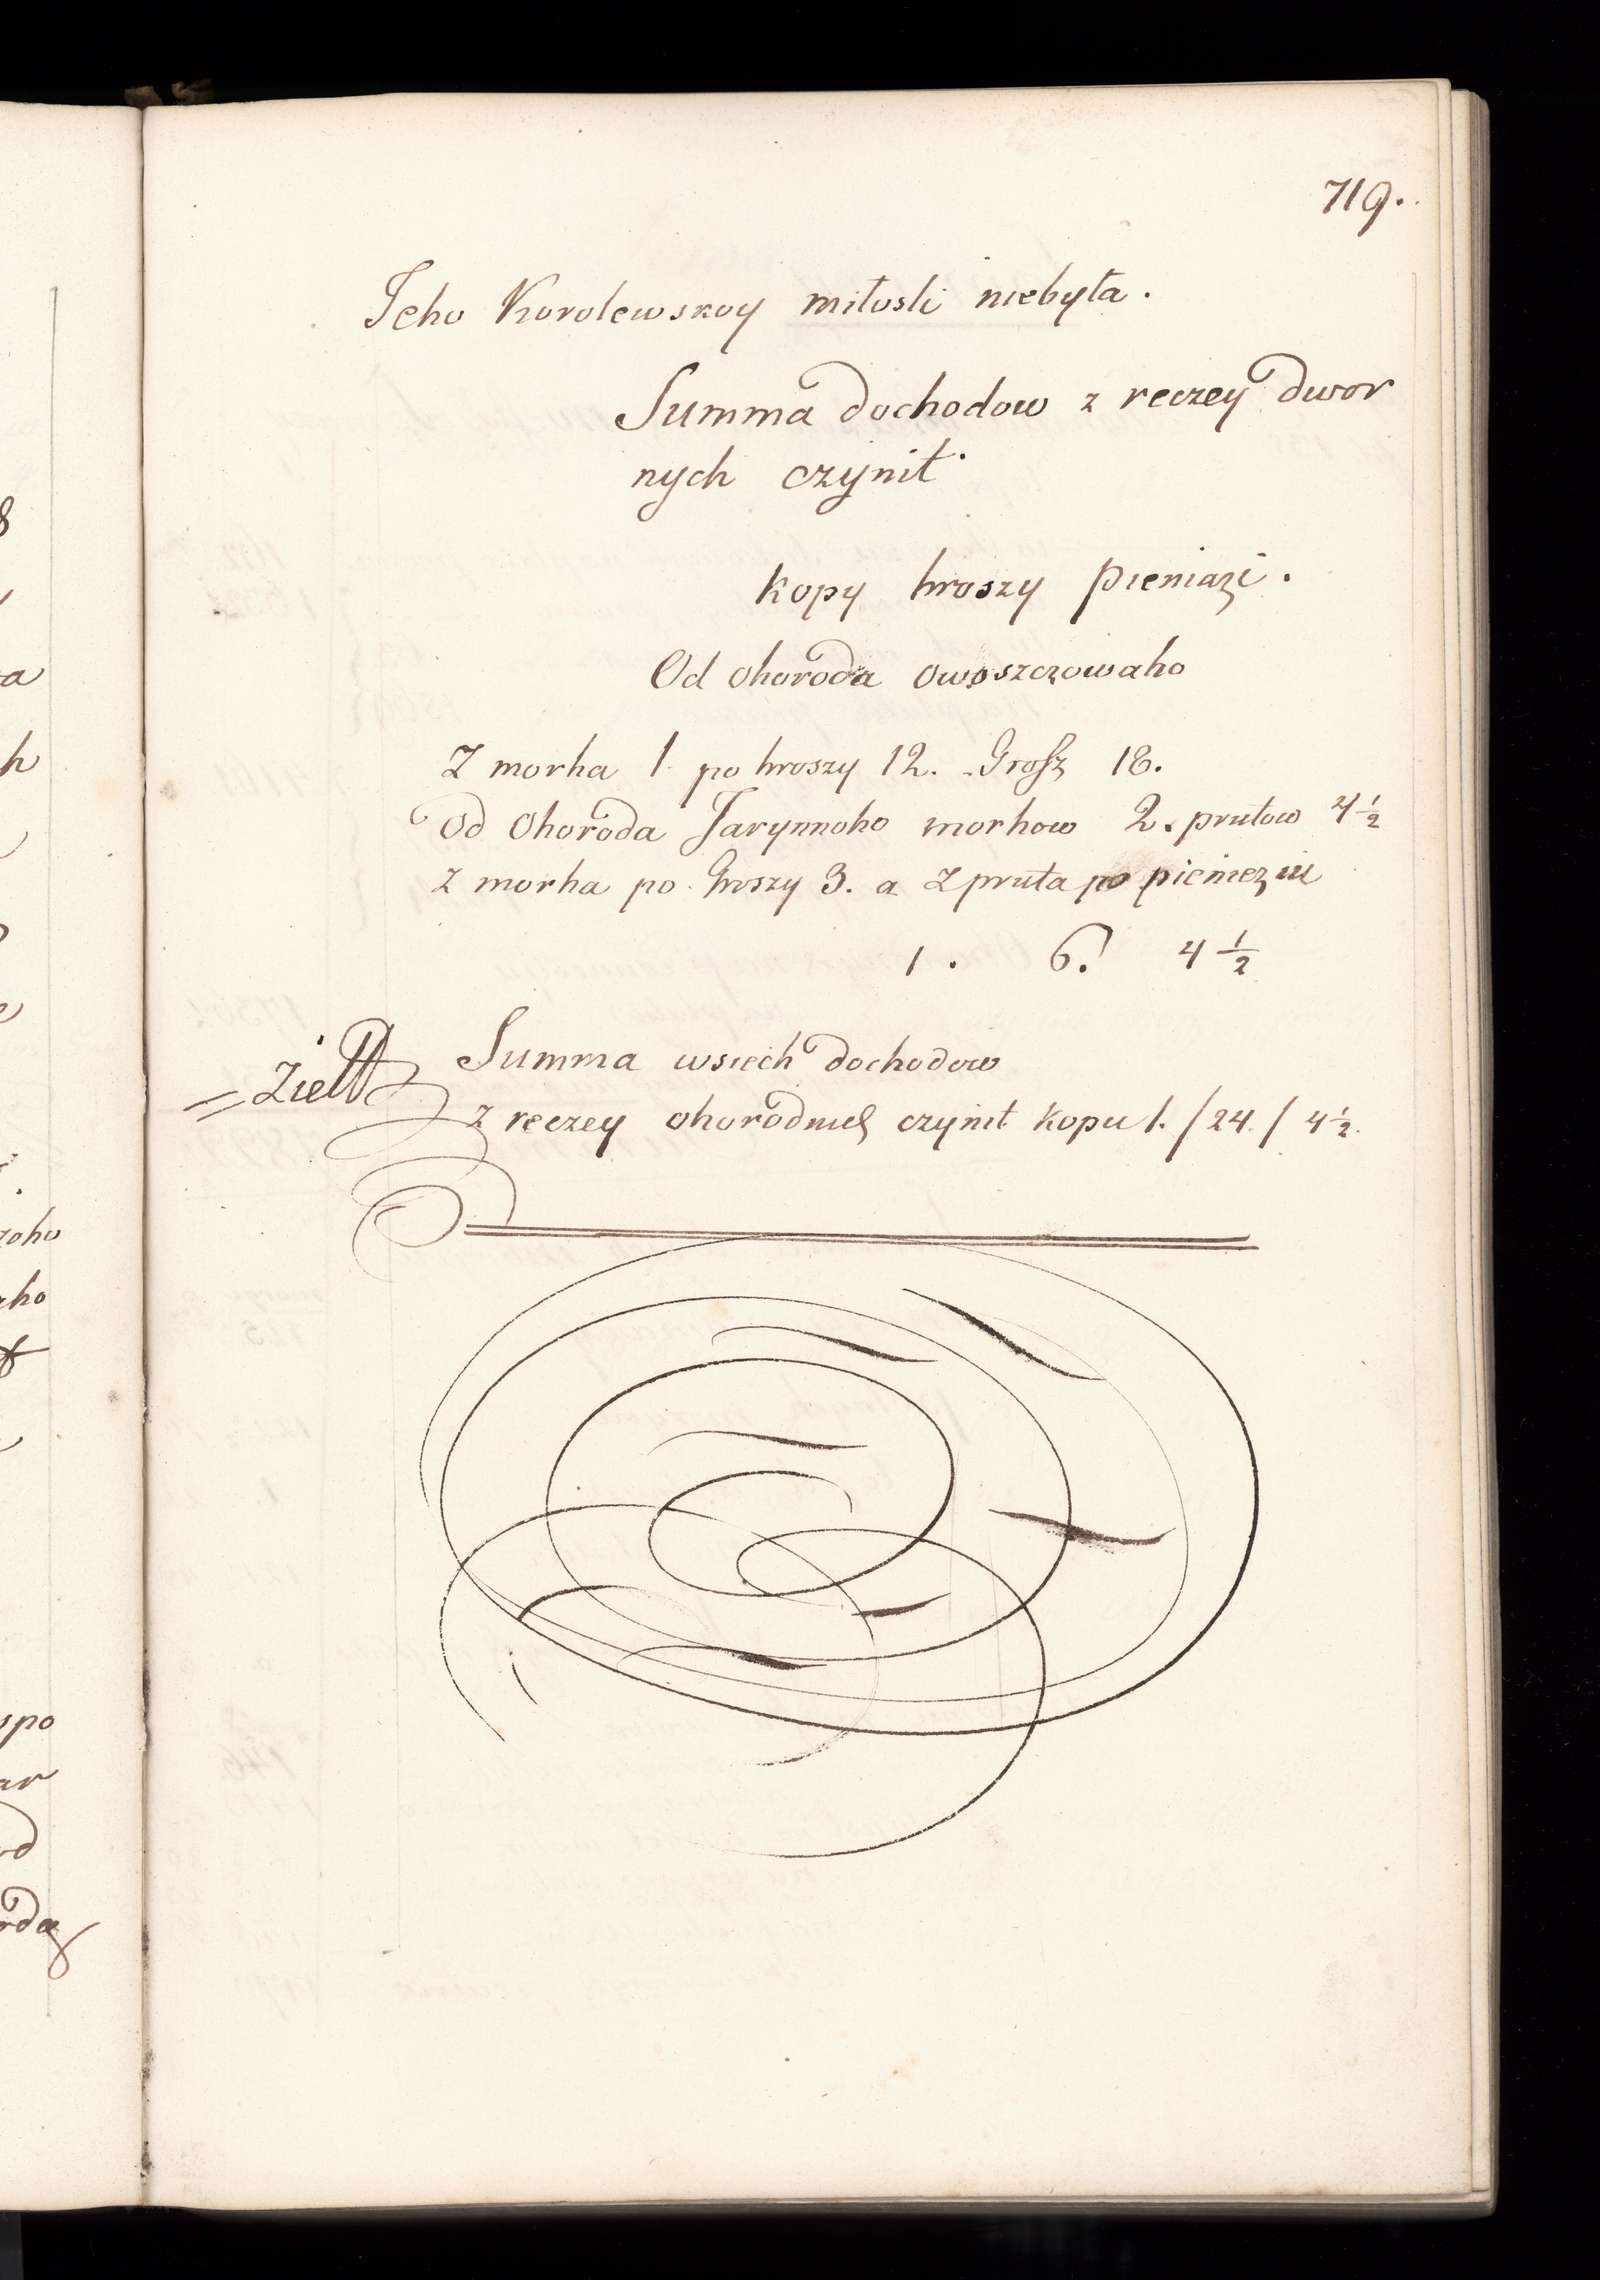 719.
Jeho Korolewskoy miłosti niebyła.
Summa dochodow z reczey dwor
nych czynit
kopy hroszy pieniazi.
Od ohoroda owoszczowaho
Z morha 1 po hroszy 12. Grosz 18.
Od Ohoroda Jarynnoho morhow 2. prutow 4½
z morha po hroszy 3. a z pruta po pieniezni
1. 6. 4½
Summa wsiech dochodow
z reczey ohorodnich czynit kopu 1. / 24. / 4½.